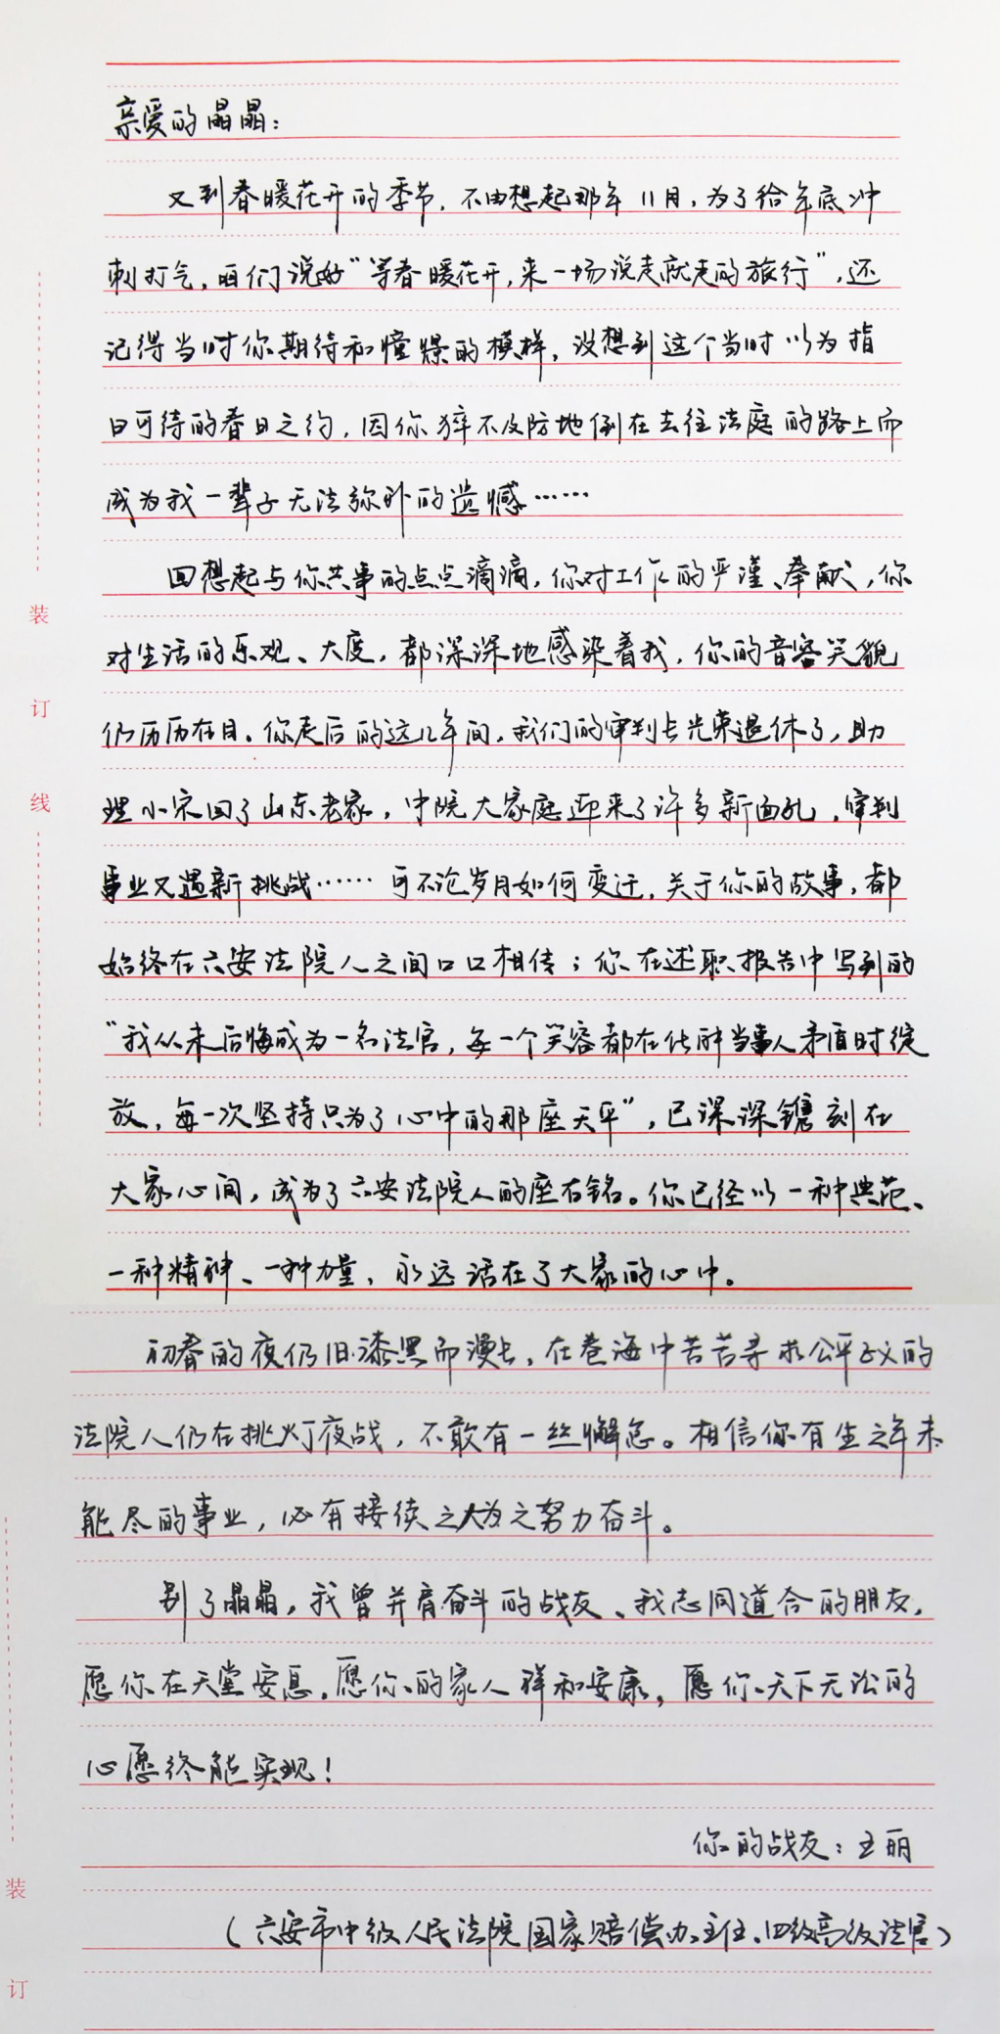 亲爱的晶晶：
又到春暖花开的季节，不由想起那年11月，为了给年底冲
刺打气，咱们说好“等春暖花开，来一场说走就走的旅行”，还
记得当时你期待和憧憬的模样，没想到这个当时以为指
日可待的春日之约，因你猝不及防地倒在去往法庭的路上而
成为我一辈子无法弥补的遗憾……
回想起与你共事的点点滴滴，你对工作的严谨、奉献，你
对生活的乐观、大度，都深深地感染着我，你的音容笑貌
仍历历在目。你走后的这几年间，我们的审判长光荣退休了，助
理小宋回了山东老家，中院大家庭迎来了许多新面孔，审判
事业又遇新挑战……可不论岁月如何变迁，关于你的故事，都
始终在六安法院人之间口口相传；你在述职报告中写到的
“我从未后悔成为一名法官，每一个笑容都在化解当事人矛盾时绽
放，每一次坚持只为了心中的那座天平”，已深深镌刻在
大家心间，成为了六安法院人的座右铭。你已经以一种典范、
一种精神、一种力量，永远活在了大家的心中。
初春的夜仍旧漆黑而漫长，在卷海中苦苦寻求公平正义的
法院人仍在挑灯夜战，不敢有一丝懈怠。相信你有生之年未
能尽的事业，必有接续之人为之努力奋斗。
别了晶晶，我曾并肩奋斗的战友、我志同道合的朋友，
愿你在天堂安息，愿你的家人祥和安康，愿你天下无讼的
心愿终能实现！
你的战友：王丽
（六安市中级人民法院国家赔偿办主任、四级高级法官）
装
订
线
装
订